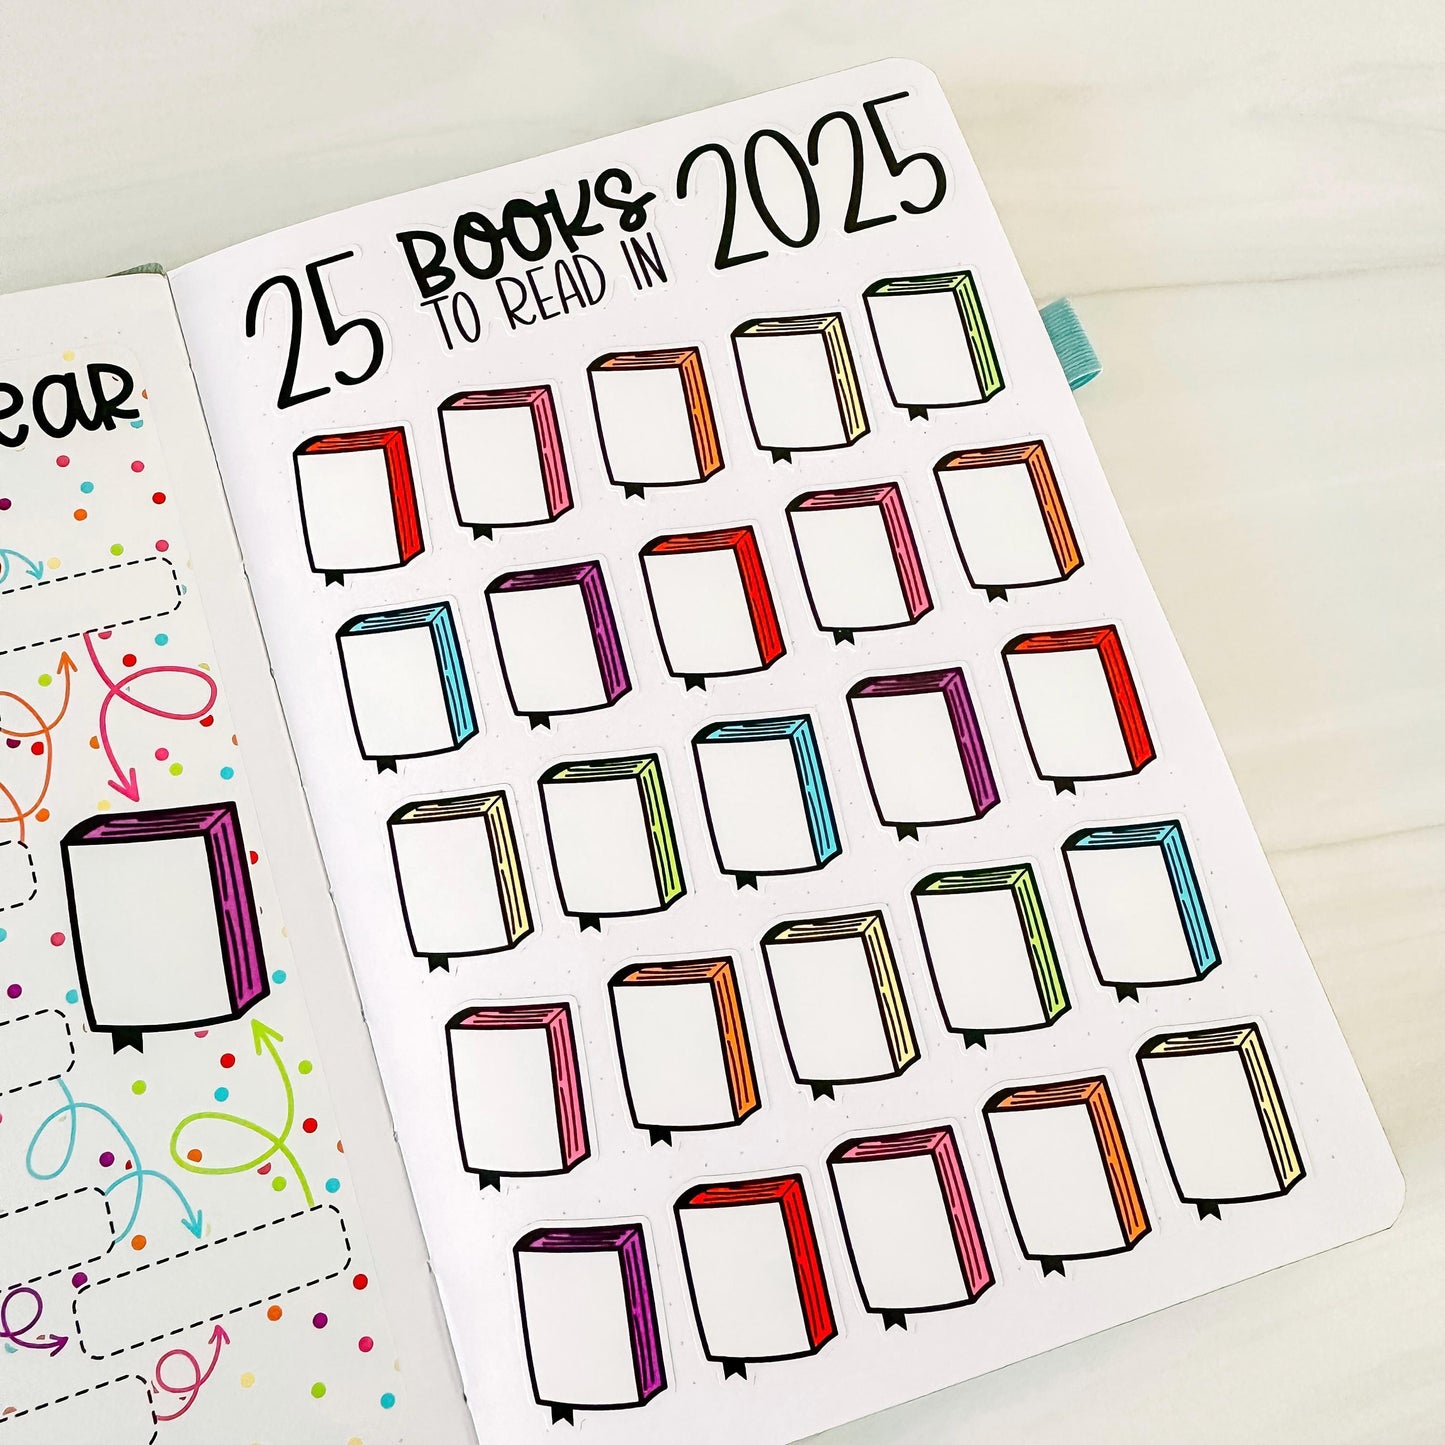 25 BOOKS
TO READ IN 2025